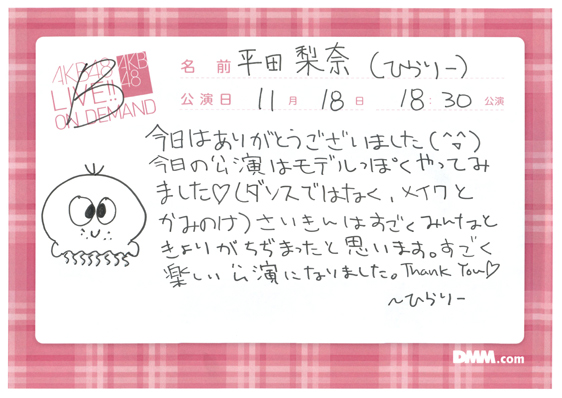 AKB48
LIVE!!
ON DEMAND
AKB
48
B
名前 平田 梨奈 (ひらりー)
公演日 11月 18日 18:30 公演
今日はありがとうございました(^▽^)
今日の公演はモデルっぽくやってみ
ました♡(ダンスではなく、メイクと
かみのけ)さいきんはすごくみんなと
きょりがちぢまったと思います。すごく
楽しい公演になりました。Thank You♡
〜ひらりー
DMM.com